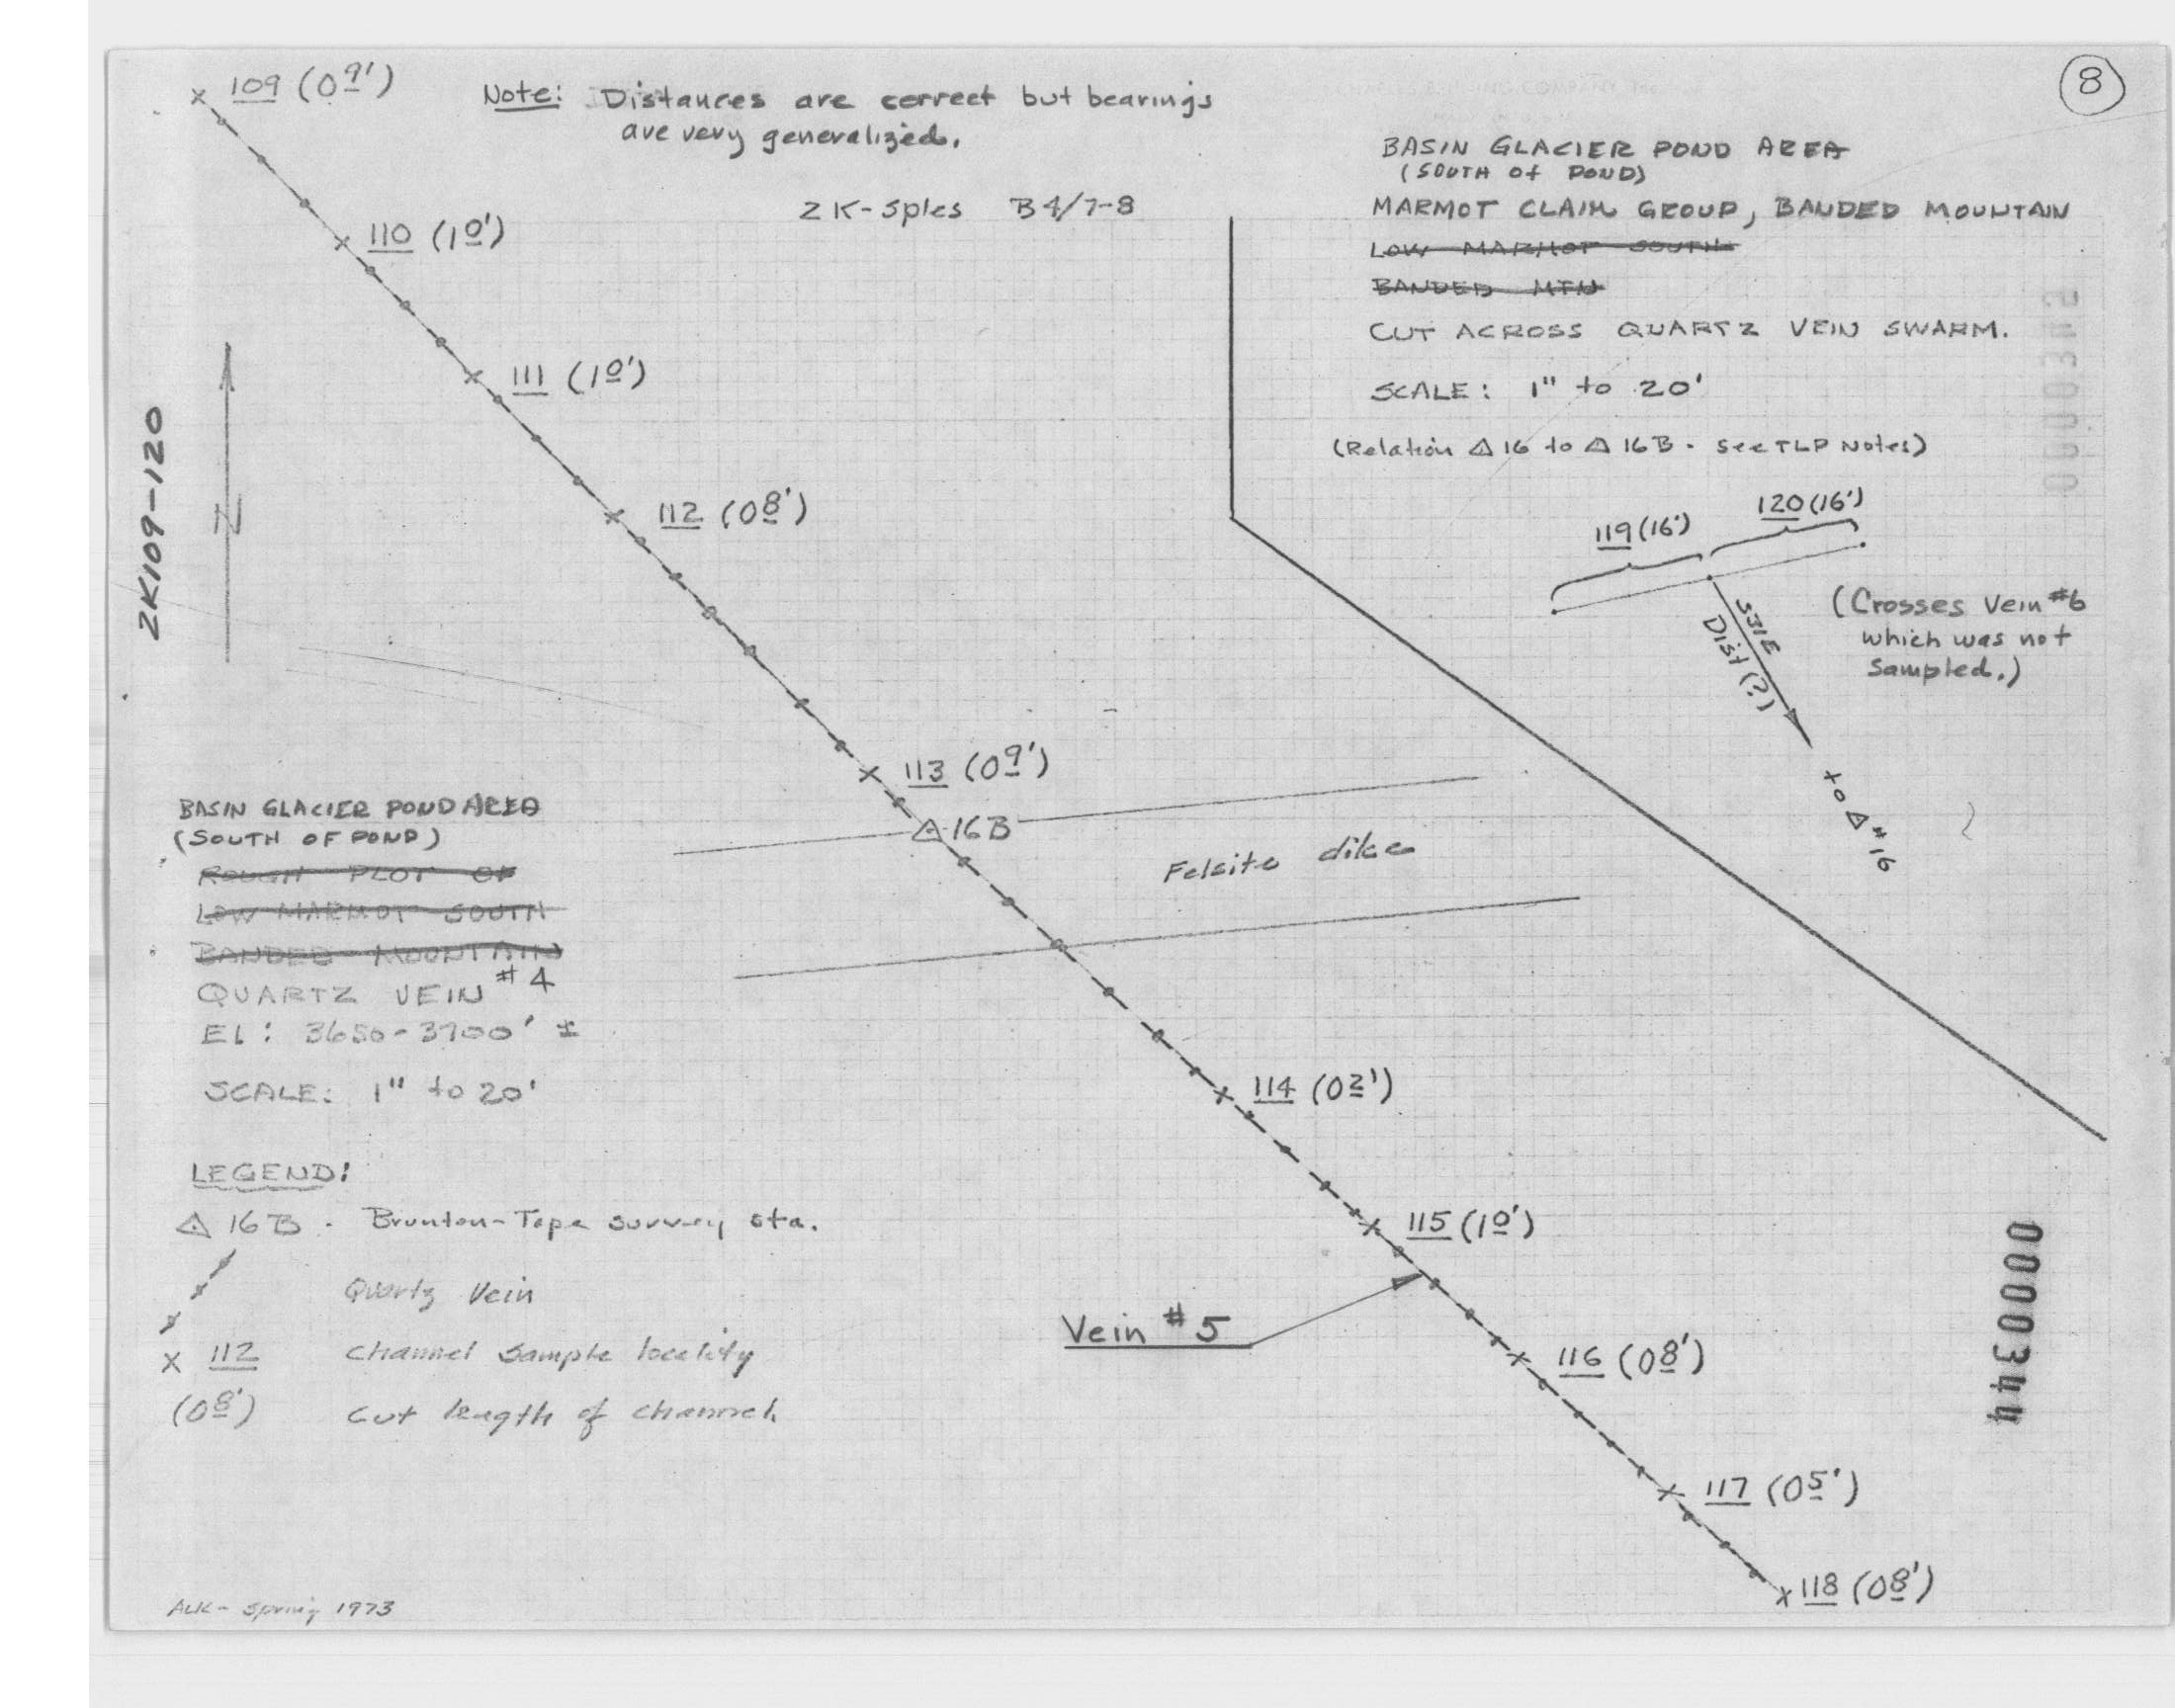 109 (0 9')
Note: Distances are correct but bearings
are very generalized.
8
BASIN GLACIER POND AREA
(SOUTH of POND)
MARMOT CLAIM GROUP, BANDED MOUNTAIN
LOW MARMOT SOUTH
BANDED MTN
CUT ACROSS QUARTZ VEIN SWARM.
SCALE: 1" to 20'
(Relation △ 16 to △ 16B - see TLP Notes)
ZK-Sples B4/7-8
110 (1 0')
111 (1 0')
112 (0 8')
N
ZK109-120
119 (16')
120 (16')
S31E
Dist (?)
to △ #16
(Crosses Vein #6
which was not
Sampled.)
113 (0 9')
△ 16B
Felsite dike
BASIN GLACIER POND AREA
(SOUTH OF POND)
ROUGH PLOT OF
LOW MARMOT SOUTH
BANDED MOUNTAIN
QUARTZ VEIN #4
El: 3650-3700' ±
SCALE: 1" to 20'
114 (0 2')
115 (1 0')
Vein #5
116 (0 8')
117 (0 5')
118 (0 8')
LEGEND:
△ 16B - Brunton-Tape survey sta.
Quartz Vein
x 112 Channel Sample locality
(0 8') Cut length of channel
0000344
AUK - Spring 1973